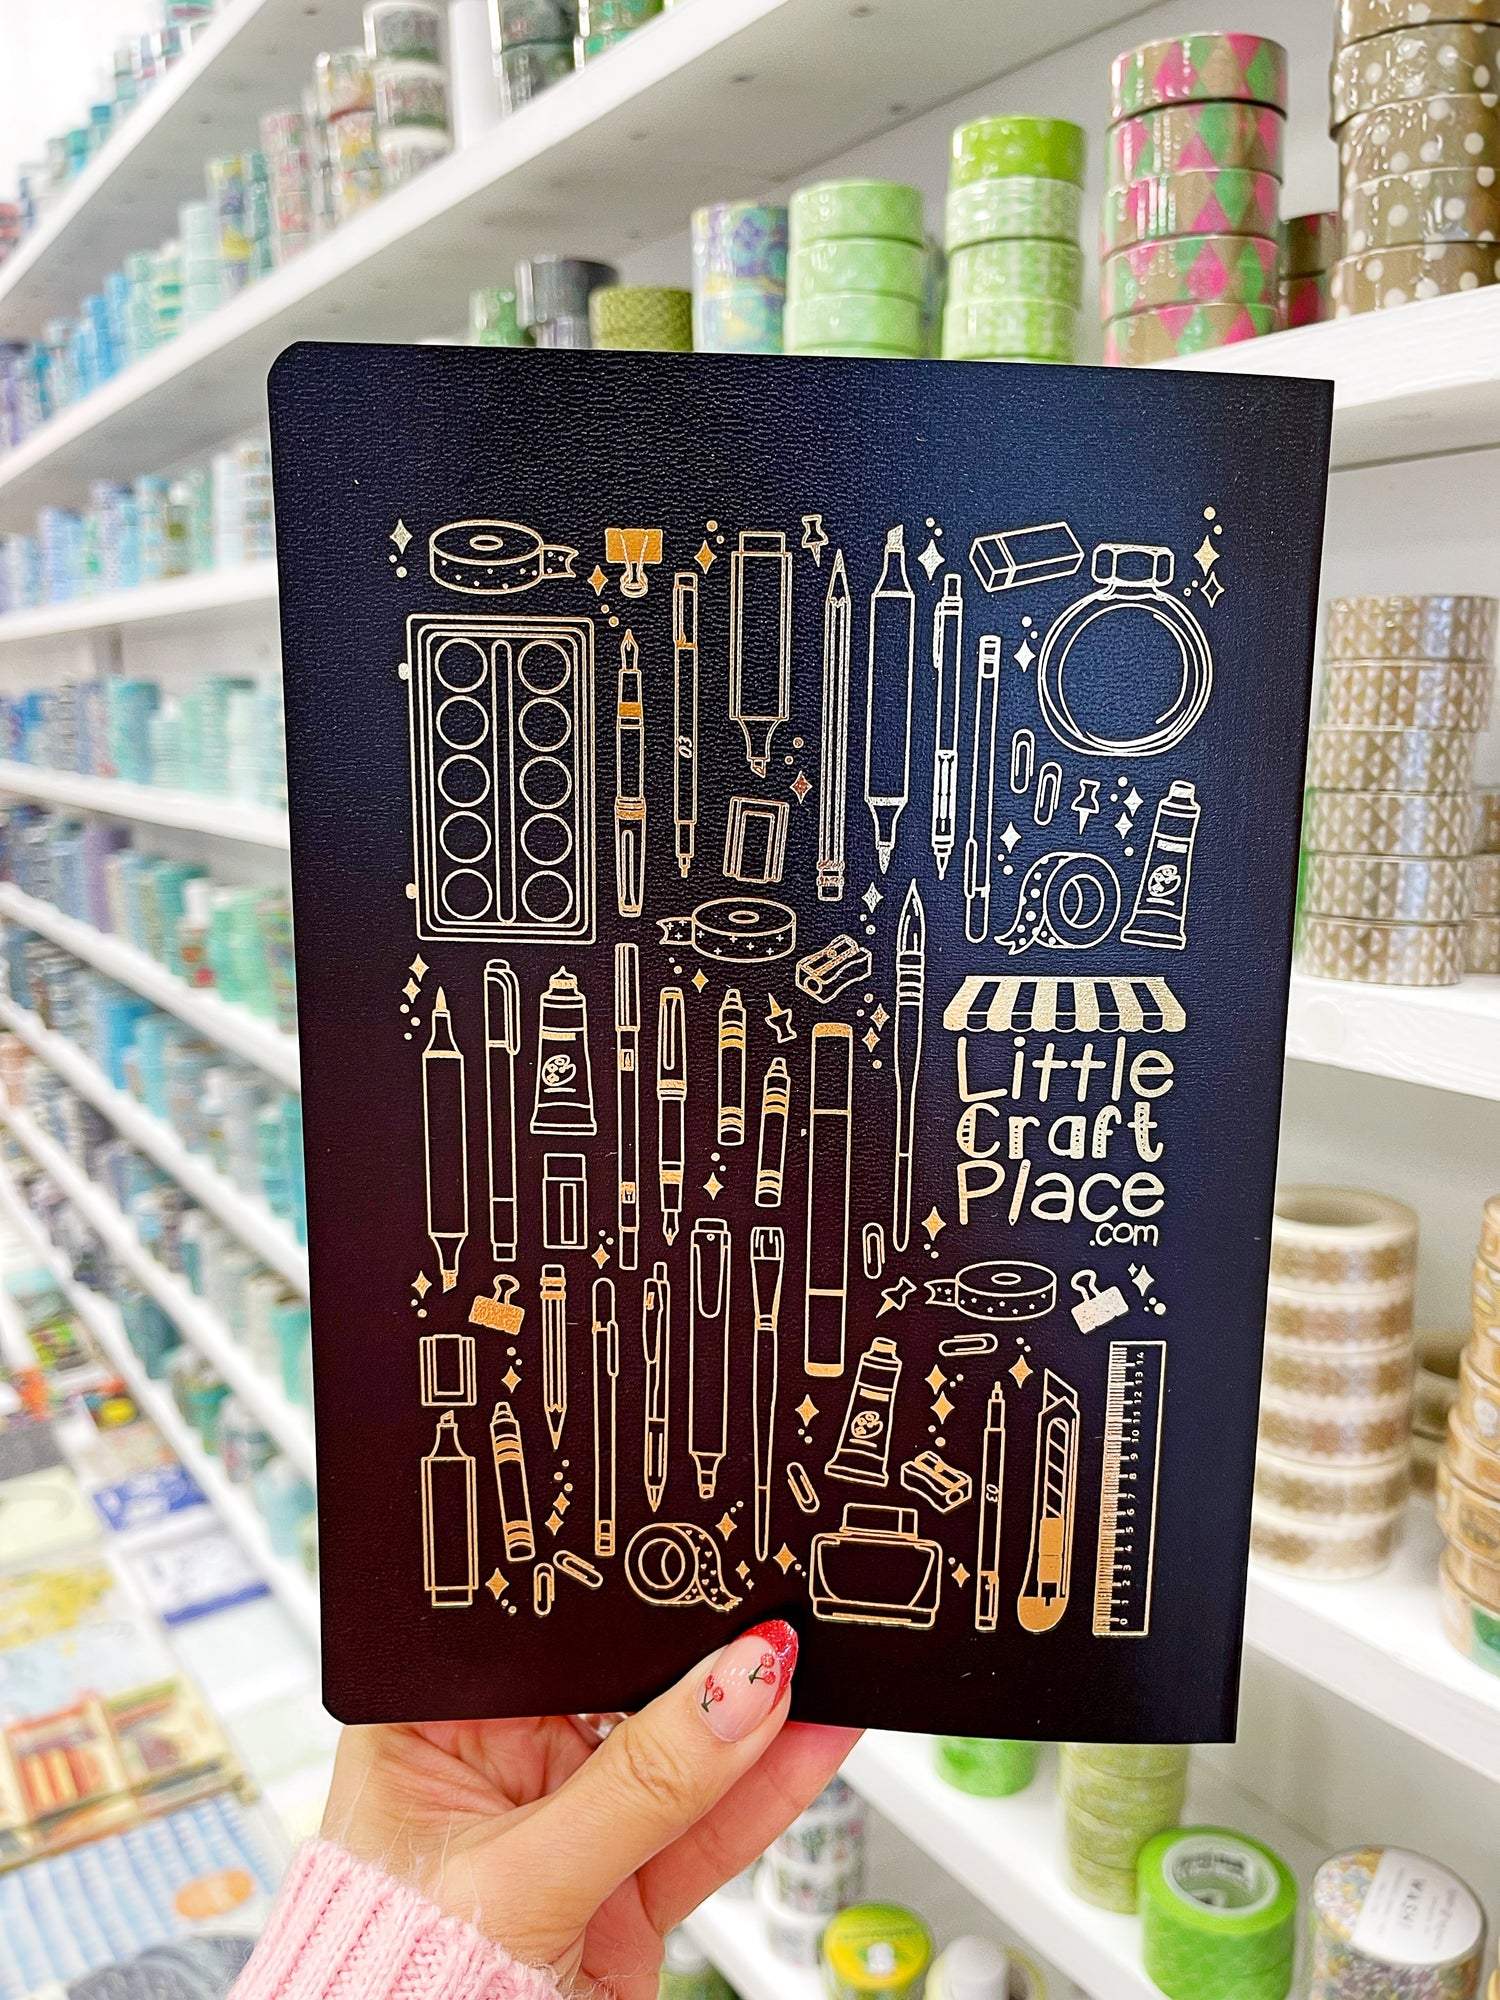 0.3
Little
Craft
Place
.com
0.3
0 1 2 3 4 5 6 7 8 9 10 11 12 13 14
WASHI